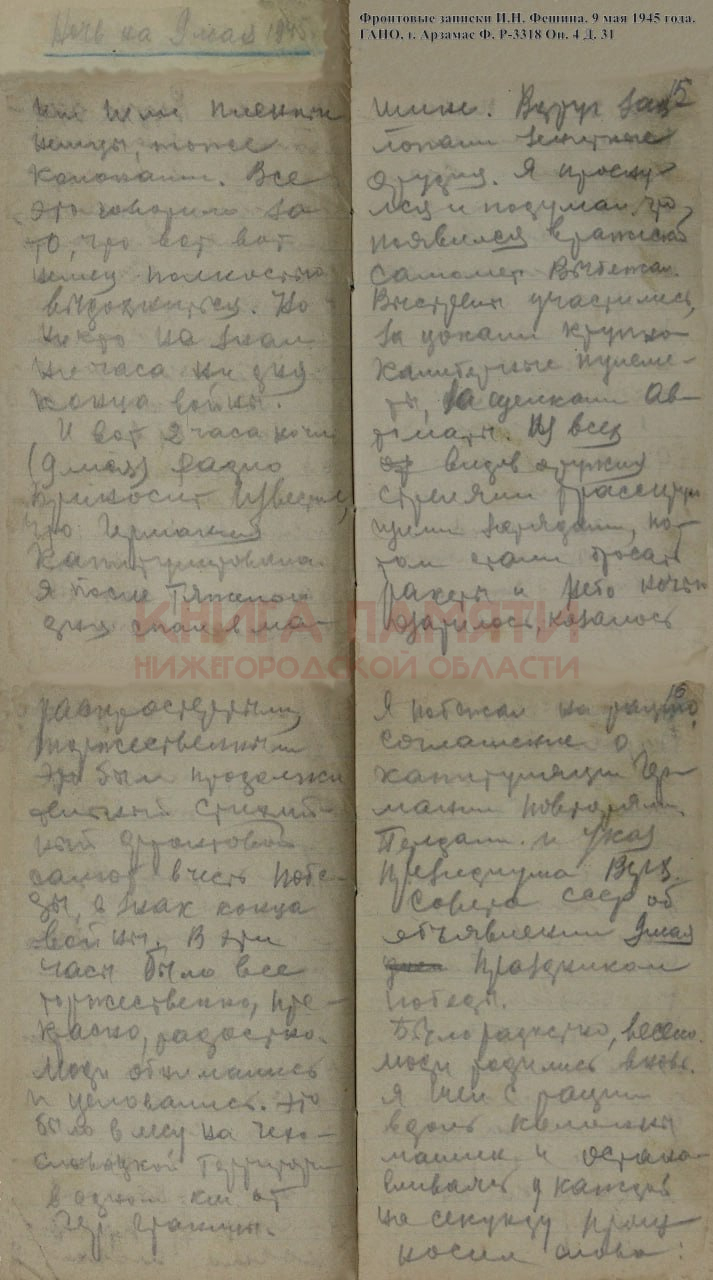 Ночь на 9 мая 1945
Фронтовые записки И.Н. Фешина. 9 мая 1945 года.
ГАНО, г. Арзамас Ф. Р-3318 Оп. 4 Д. 31
шли пленные
немцы, тоже
колонами. Все
это говорило за
то, что вот вот
немец полностью
выдохнется. Но
никто не знал
ни часа ни дня
конца войны.
И вот 2 часа ночи
(9 мая) радио
приносит известие,
что Германия
капитулировала.
Я после тяжелого
дня спал в ма-
15
шине. Вдруг зах
лопали зенитные
орудия. Я просну
лся и подумал, что
появился вражеский
самолет. Выбежал.
Выстрелы участились,
за цокали крупно
калиберные пулеме-
ты, защелкали ав-
томаты. Из всех
видов оружия
стреляли трассирую
щими зарядами, по-
том стали бросать
ракеты и небо ночью
озарилось, казалось
КНИГА ПАМЯТИ
НИЖЕГОРОДСКОЙ ОБЛАСТИ
торжественным
Это был продолжи
тельный стихий-
ный фронтовой
салют в честь побе-
ды, в знак конца
войны. В эти
часы было все
торжественно, пре-
красно, радостно.
Люди обнимались
и целовались. Это
было в лесу на чехо-
словацкой территории
в одном км от
гер. границы.
16
Я побежал на рацию,
соглашение о
капитуляции Гер
мании повторяли.
Передали и Указ
президиума Верх.
Совета СССР об
объявлении 9 мая
праздником
победы.
Было радостно, весело.
Люди родились вновь.
Я шел с рации
вдоль колонны
машин и останав
ливаясь у каждой
на секунду произ
носил слова: